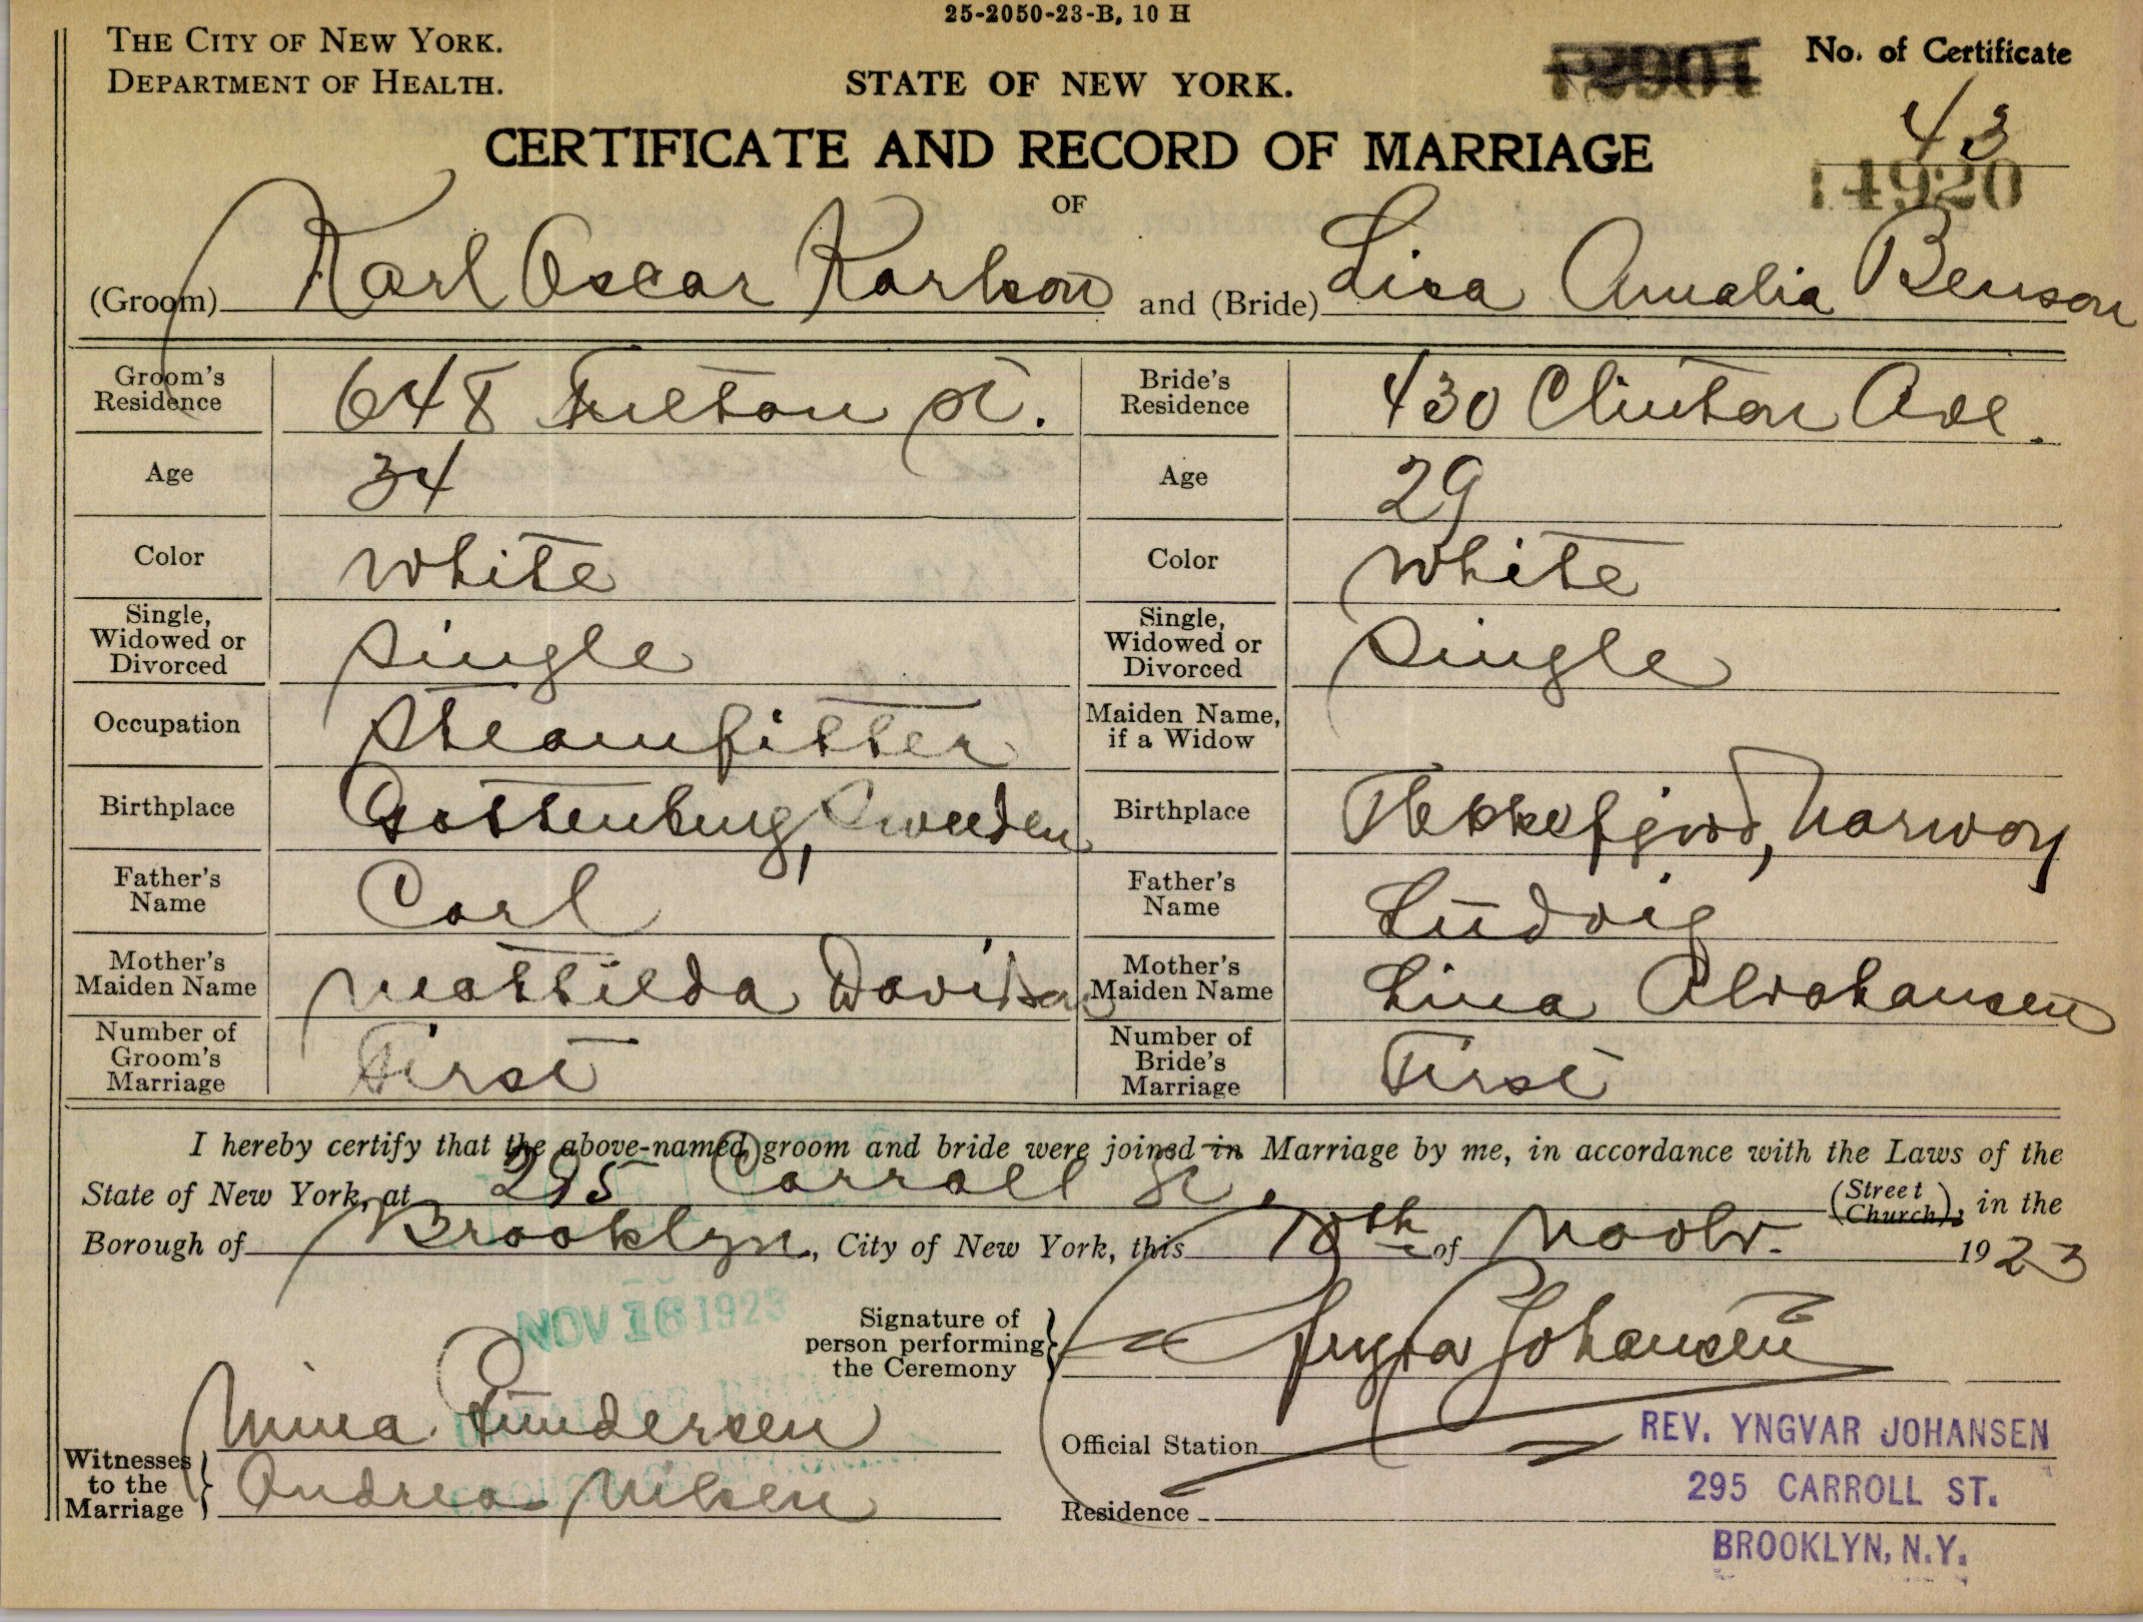 25-2050-23-B, 10 H
THE CITY OF NEW YORK.
DEPARTMENT OF HEALTH.
STATE OF NEW YORK.
No. of Certificate
43
14920
CERTIFICATE AND RECORD OF MARRIAGE
OF
(Groom) Karl Oscar Karlson and (Bride) Lisa Amalia Benson
Groom's Residence 648 Fulton St. Bride's Residence 430 Clinton Ave.
Age 34 Age 29
Color White Color White
Single, Widowed or Divorced Single Single, Widowed or Divorced Single
Occupation Steamfitter Maiden Name, if a Widow
Birthplace Gottenburg, Sweeden Birthplace Flekkefjord, Norway
Father's Name Carl Father's Name Ludvig
Mother's Maiden Name Mathilda Davidson Mother's Maiden Name Lina
Number of Groom's Marriage First Number of Bride's Marriage First
I hereby certify that the above-named groom and bride were joined in Marriage by me, in accordance with the Laws of the
State of New York, at 295 Carroll St, (Street Church), in the
Borough of Brooklyn, City of New York, this 10th of Novbr. 1923
NOV 16 1923
Signature of person performing the Ceremony Yngvar Johansen
Witnesses to the Marriage
Mina Gundersen
Andrea Nilsen
Official Station REV. YNGVAR JOHANSEN
295 CARROLL ST.
Residence
BROOKLYN, N.Y.